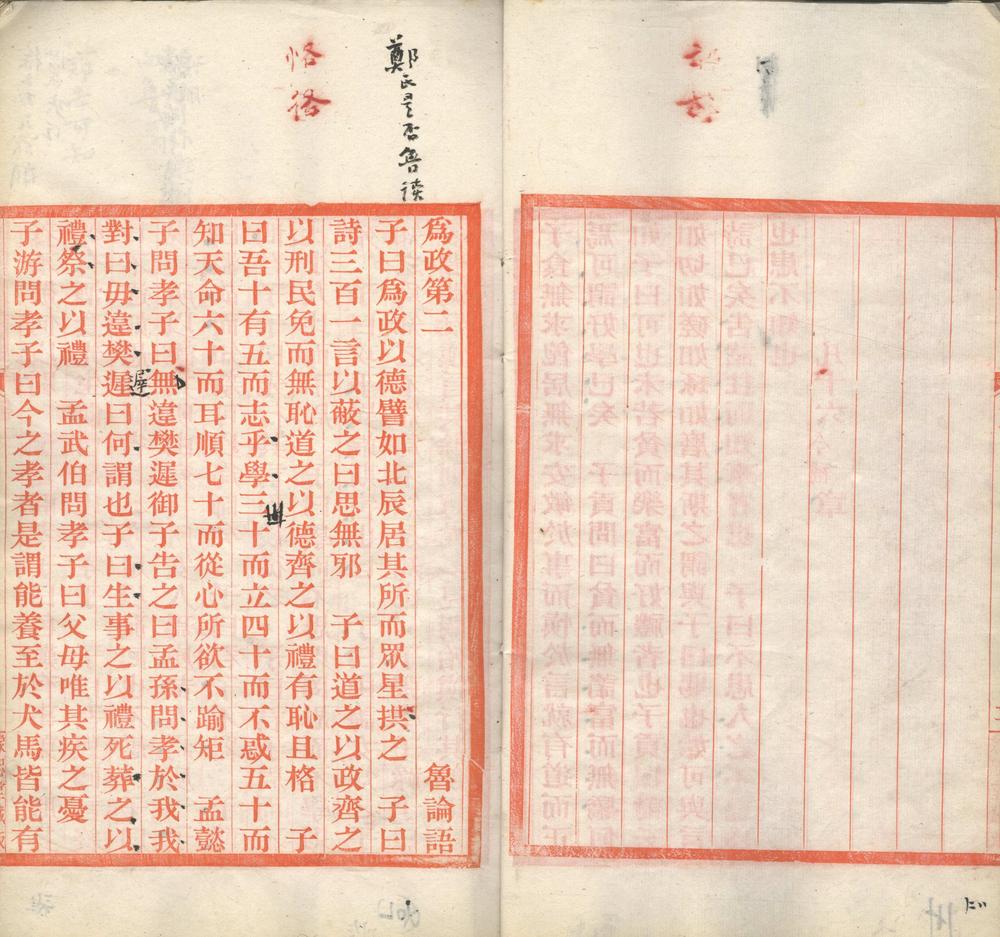 鄭氏是否魯讀
恪
為政第二　魯論語
子曰為政以德譬如北辰居其所而眾星拱之　子曰
詩三百一言以蔽之曰思無邪　子曰道之以政齊之
以刑民免而無恥道之以德齊之以禮有恥且格　子
曰吾十有五而志乎學三十而立四十而不惑五十而
卅
知天命六十而耳順七十而從心所欲不踰矩　孟懿
子問孝子曰無違樊遲御子告之曰孟孫問孝於我我
對曰毋違樊遲曰何謂也子曰生事之以禮死葬之以
禮祭之以禮　孟武伯問孝子曰父母唯其疾之憂
子游問孝子曰今之孝者是謂能養至於犬馬皆能有